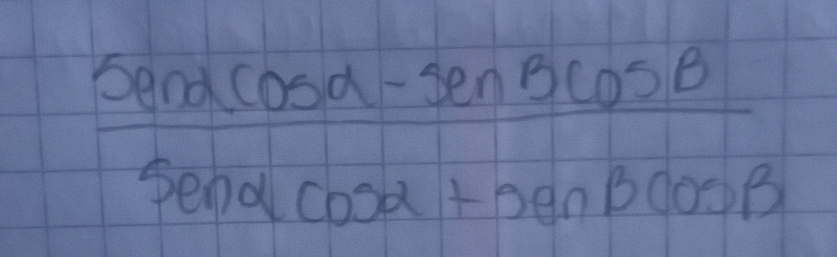 senα cosα - sen B cos B
senα cosα + sen B cos B